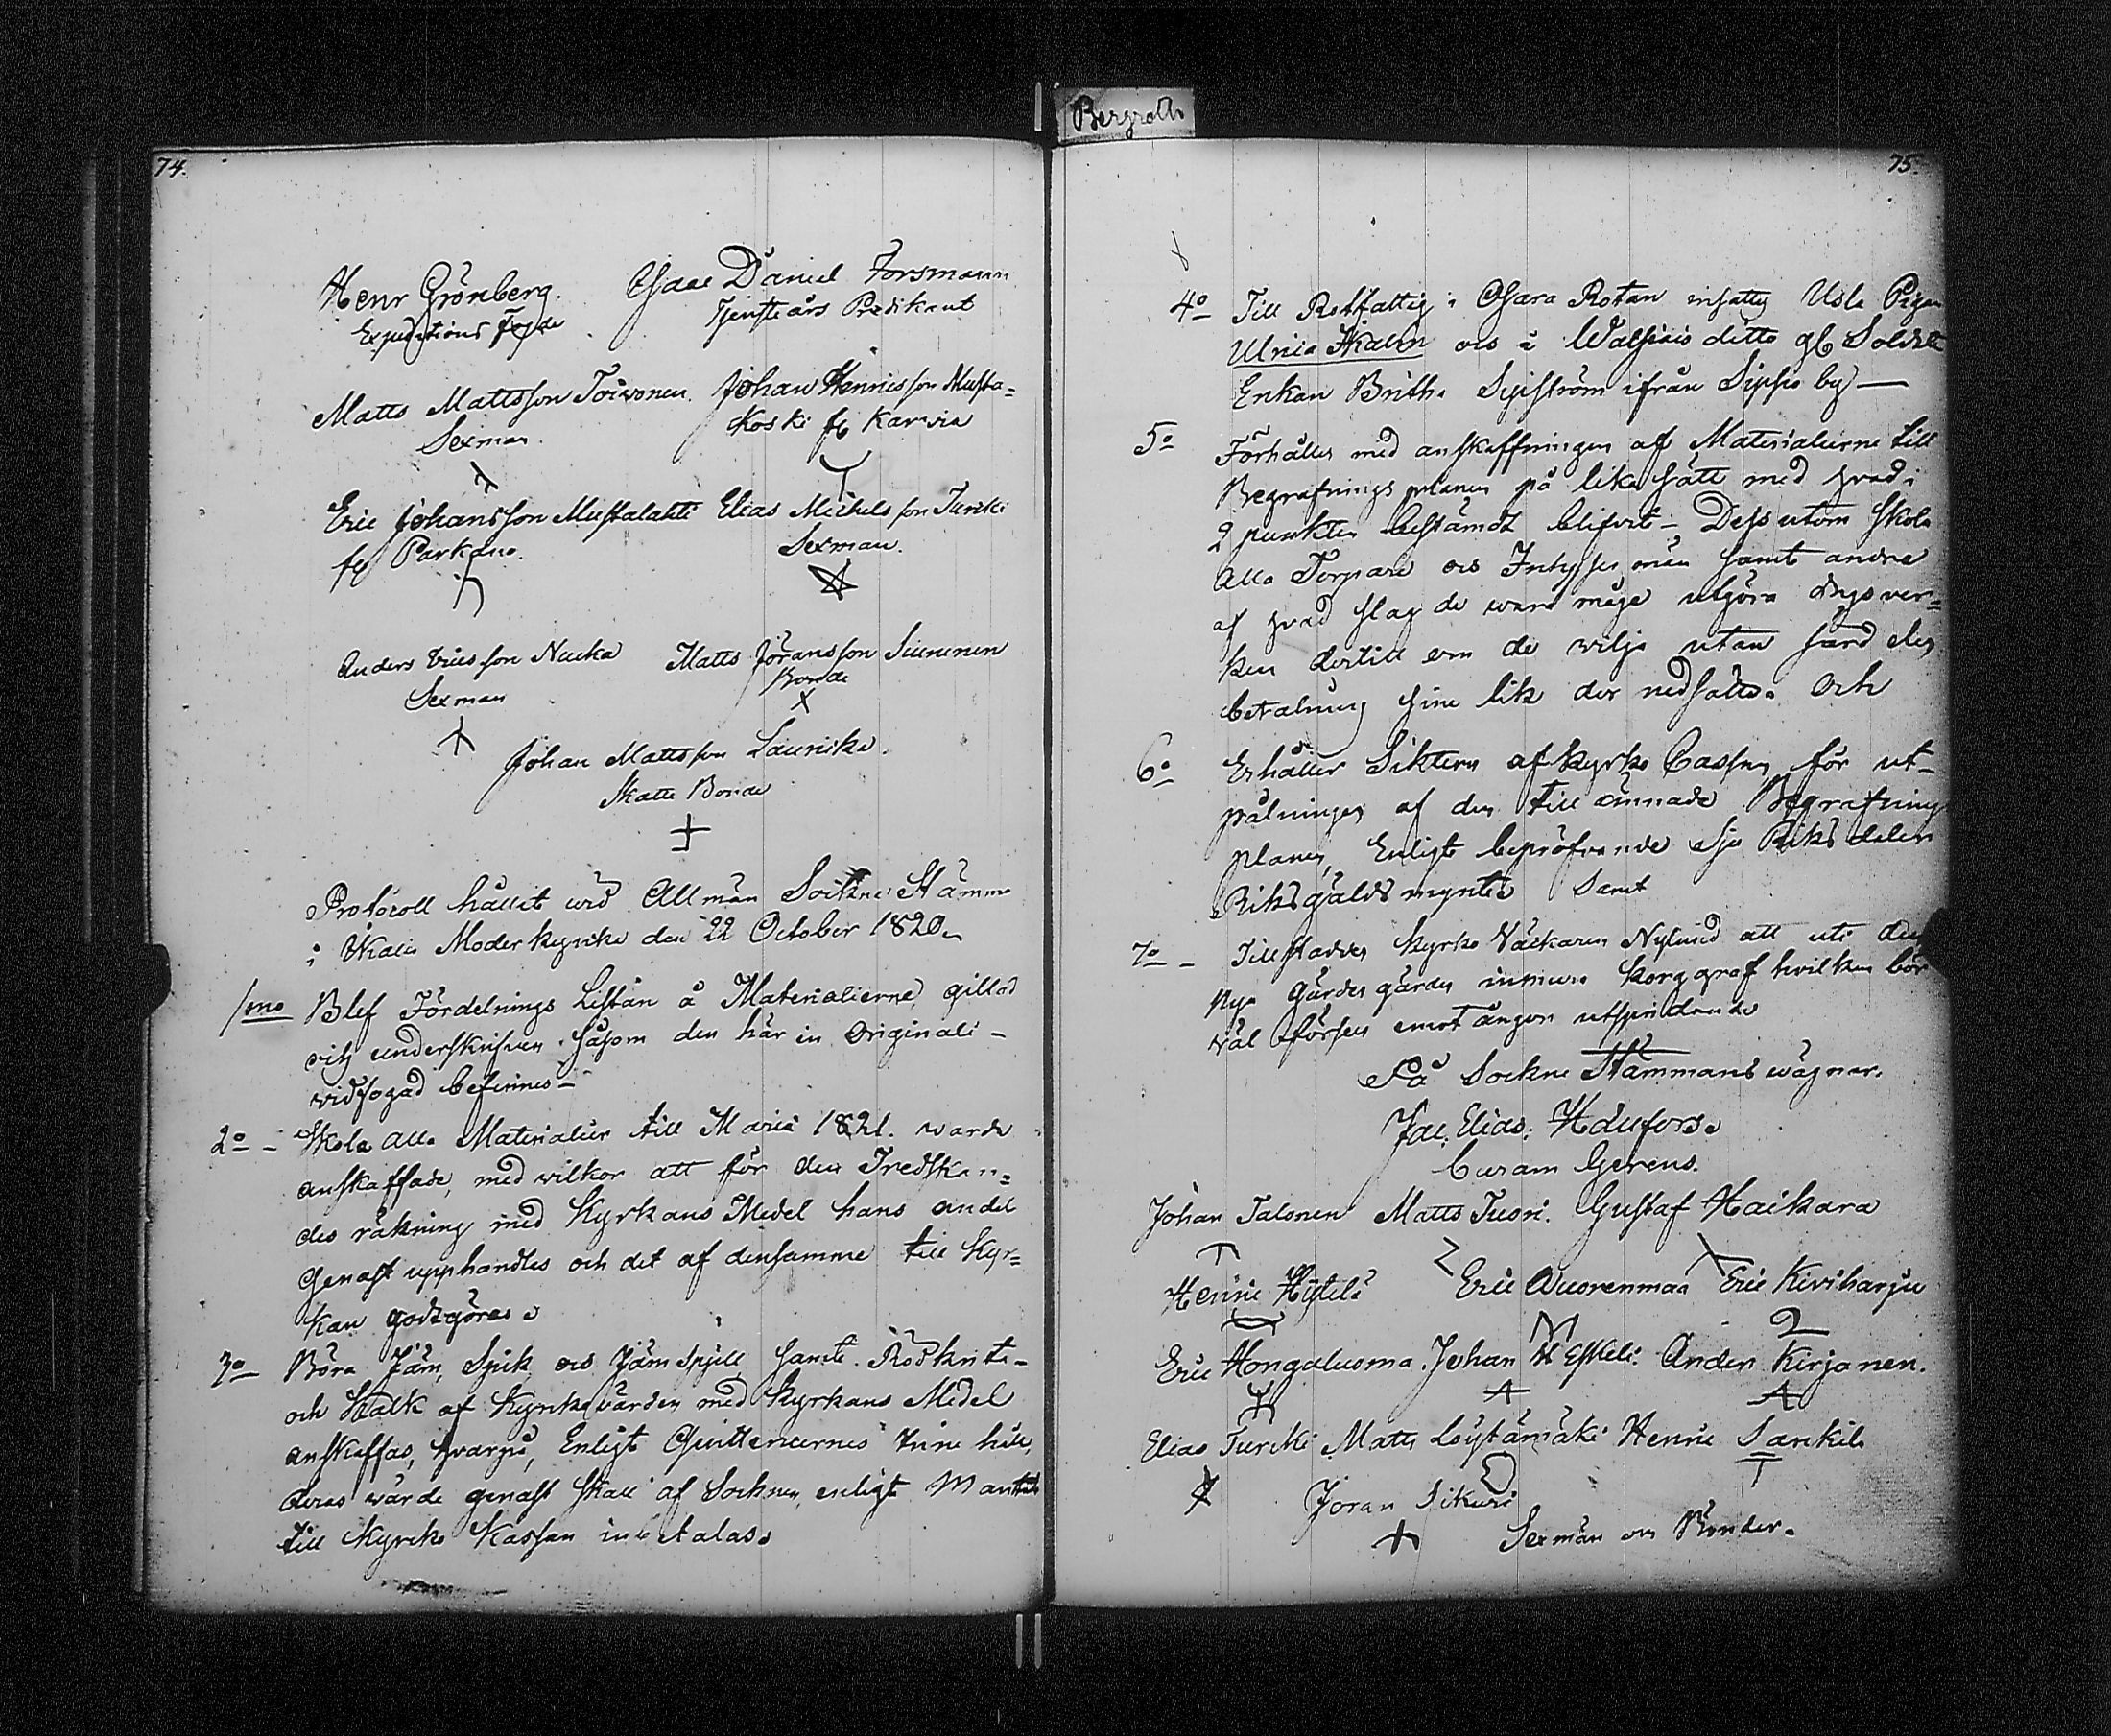 Bergroth
74.
Henr Grönberg. Isaac Daniel Forsmann
Expeditions Fogde Tjensteårs Predikant
Matts Mattsson Toivonen. Johan Hennicsson Musta=
Sexman. koski fr Karvia
Eric Johansson Mustalahti Elias Michelsson Turcki
fr Parkano. Sexman.
Anders Ericsson Nucka Matts Jöransson
Sexman Bonde
Johan Mattsson Launicka.
Skatte Bonde
Protocoll hållit wid Allmän Sockne Stämma
i Ikalis Moderkyrka den 22 October 1820.
1mo Blef Fördelnings Listan å Materialierne gillad
och underskrifven såsom den här in Originali
vidfogad befinnes
2o Skola alla Materialier till Maria 1821. warda
anskaffade, med wilkor att för den Tredskan=
des räkning med Kyrkans Medel hans andel
genast upphandles och det af densamme till Kyr=
kan godtgöres
3o Böra Järn, Spik och Järn Spjäll samt Rödkrita
och Kalk af Kyrkovärden med Kyrkans Medel
anskaffas, hvarpå, Enligt Quittencernes
deras wärde genast skall af Socknen, enligt Mantal
till Kyrko Kassan inbetalas.
75.
4o Till Rotfattig i Osara Rotan insattes Usla Pigan
Ulrica och i ditto gl Soldats
Enkan Britha ifrån Sipsio by
5o Förhålles med anskaffningen af Materialierne till
Begrafnings planen på lika sätt med hvad i
2 punkten bestämdt blifvit Dessutom skola
alla Torpare och Inhyses män samt andre
af hvad slag de vara måge utgöra dagsver=
ken dertill om de vilja utan särdeles
betalning sine lik der nedsätta. Och
6o Erhåller Siktern af Kyrko Cassan för ut-
pålningen af den till ämnade Begrafnings
planen, Enligt bepröfvande sju Riksdaler
Riksgälds mynte Samt
7o Tillstaddes Kyrko Väktaren Nylund att uti den
nya Gärdes gården inmura hvilken bör
väl förses emot ångors utspridande
På Sockne Stämmans wägnar.
Jac. Elias:
Curam Gerens.
Johan Talonen Matts Tuori. Gustaf Haikara
Henric Hytölä Eric Wuorenmaa Eric Kiviharju
Eric Hongaluoma. Johan H Eskeli. Anders Kirjanen.
Elias Turcki. Matts Löytämäki Henric Sankila
Jöran Sikuri
Sexmän och Bönder.